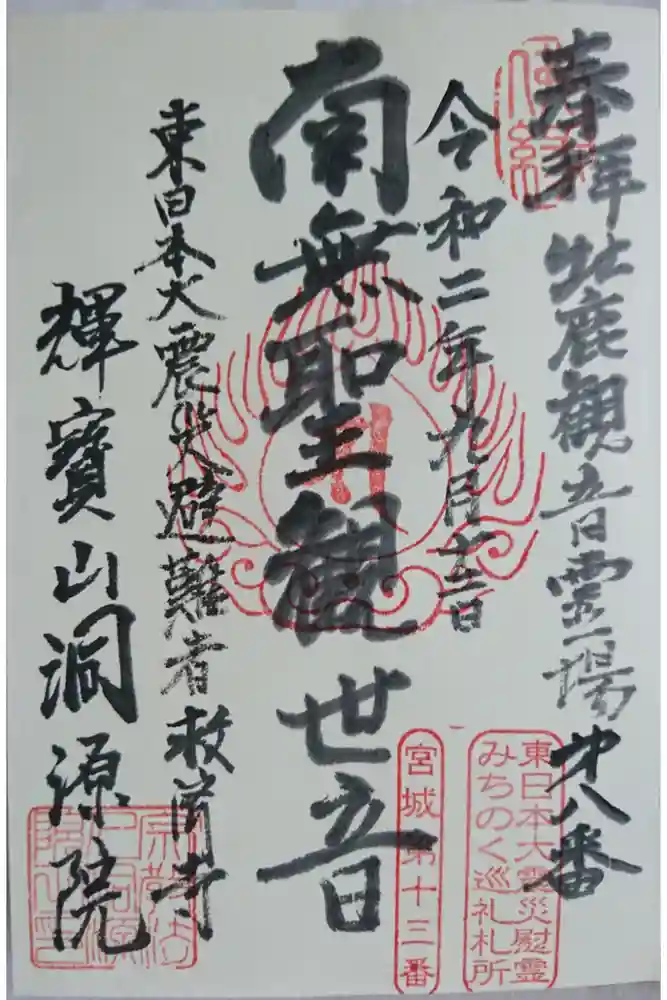 奉拝 牡鹿観音霊場 㐧八番
令和二年九月十三日
南無聖観世音
東日本大震災避難者救済寺
輝寶山洞源院
東日本大震災慰霊
みちのく巡礼札所
宮城第十三番